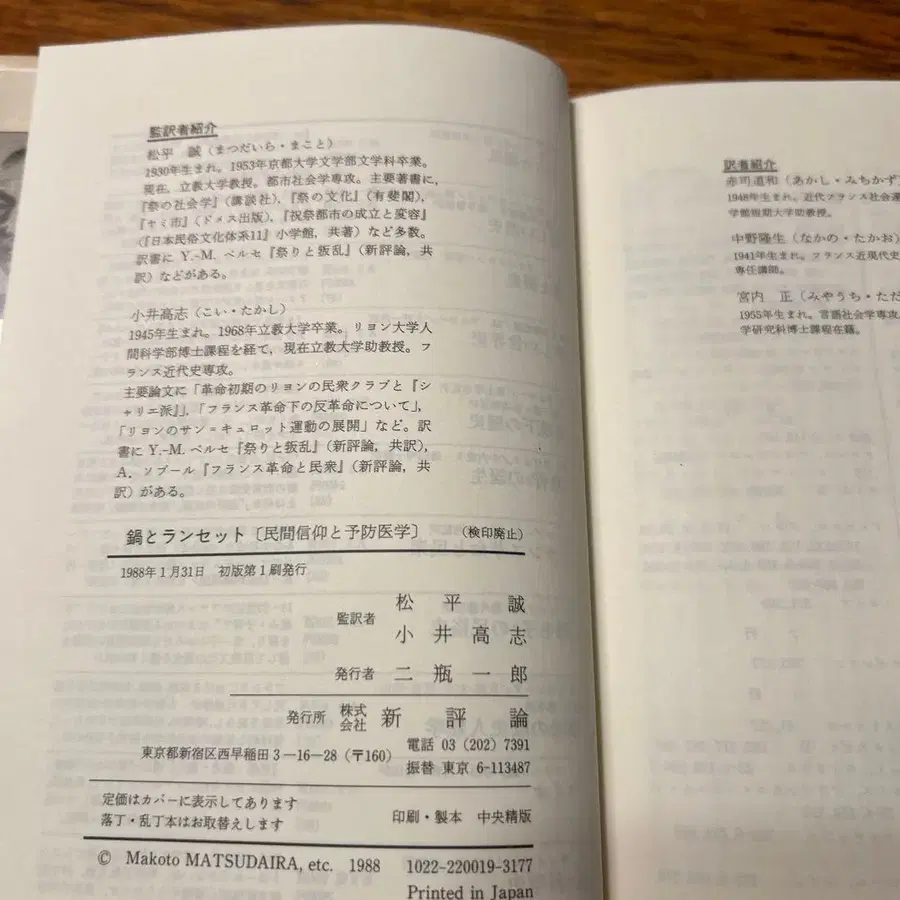 監訳者紹介
松平 誠(まつだいら・まこと)
1930年生まれ。1953年京都大学文学部文学科卒業。
現在,立教大学教授。都市社会学専攻。主要著書に,
『祭の社会学』(講談社),『祭の文化』(有斐閣),
『ヤミ市』(ドメス出版),『祝祭都市の成立と変容』
(『日本民俗文化体系11』小学館,共著)など多数。
訳書に Y.-M. ベルセ『祭りと叛乱』(新評論,共
訳)などがある。
小井高志(こい・たかし)
1945年生まれ。1968年立教大学卒業。リヨン大学人
間科学部博士課程を経て,現在立教大学助教授。フ
ランス近代史専攻。
主要論文に「革命初期のリヨンの民衆クラブと『シ
ャリエ派』」,「フランス革命下の反革命について」,
「リヨンのサン=キュロット運動の展開」など。訳
書に Y.-M. ベルセ『祭りと叛乱』(新評論,共訳),
A. ソブール『フランス革命と民衆』(新評論,共
訳)がある。
鍋とランセット〔民間信仰と予防医学〕 (検印廃止)
1988年1月31日 初版第1刷発行
監訳者 松平誠
小井高志
発行者 二瓶一郎
発行所 株式会社 新評論
東京都新宿区西早稲田3―16―28(〒160) 電話 03 (202) 7391
振替 東京 6-113487
定価はカバーに表示してあります
落丁・乱丁本はお取替えします
印刷・製本 中央精版
© Makoto MATSUDAIRA, etc. 1988 1022-220019-3177
Printed in Japan
訳者紹介
赤司道和(あかし・みちかず)
1948年生まれ。近代フランス社会運
学館短期大学助教授。
中野隆生(なかの・たかお)
1941年生まれ。フランス近現代史
専任講師。
宮内 正(みやうち・ただ
1955年生まれ。言語社会学専攻
学研究科博士課程在籍。